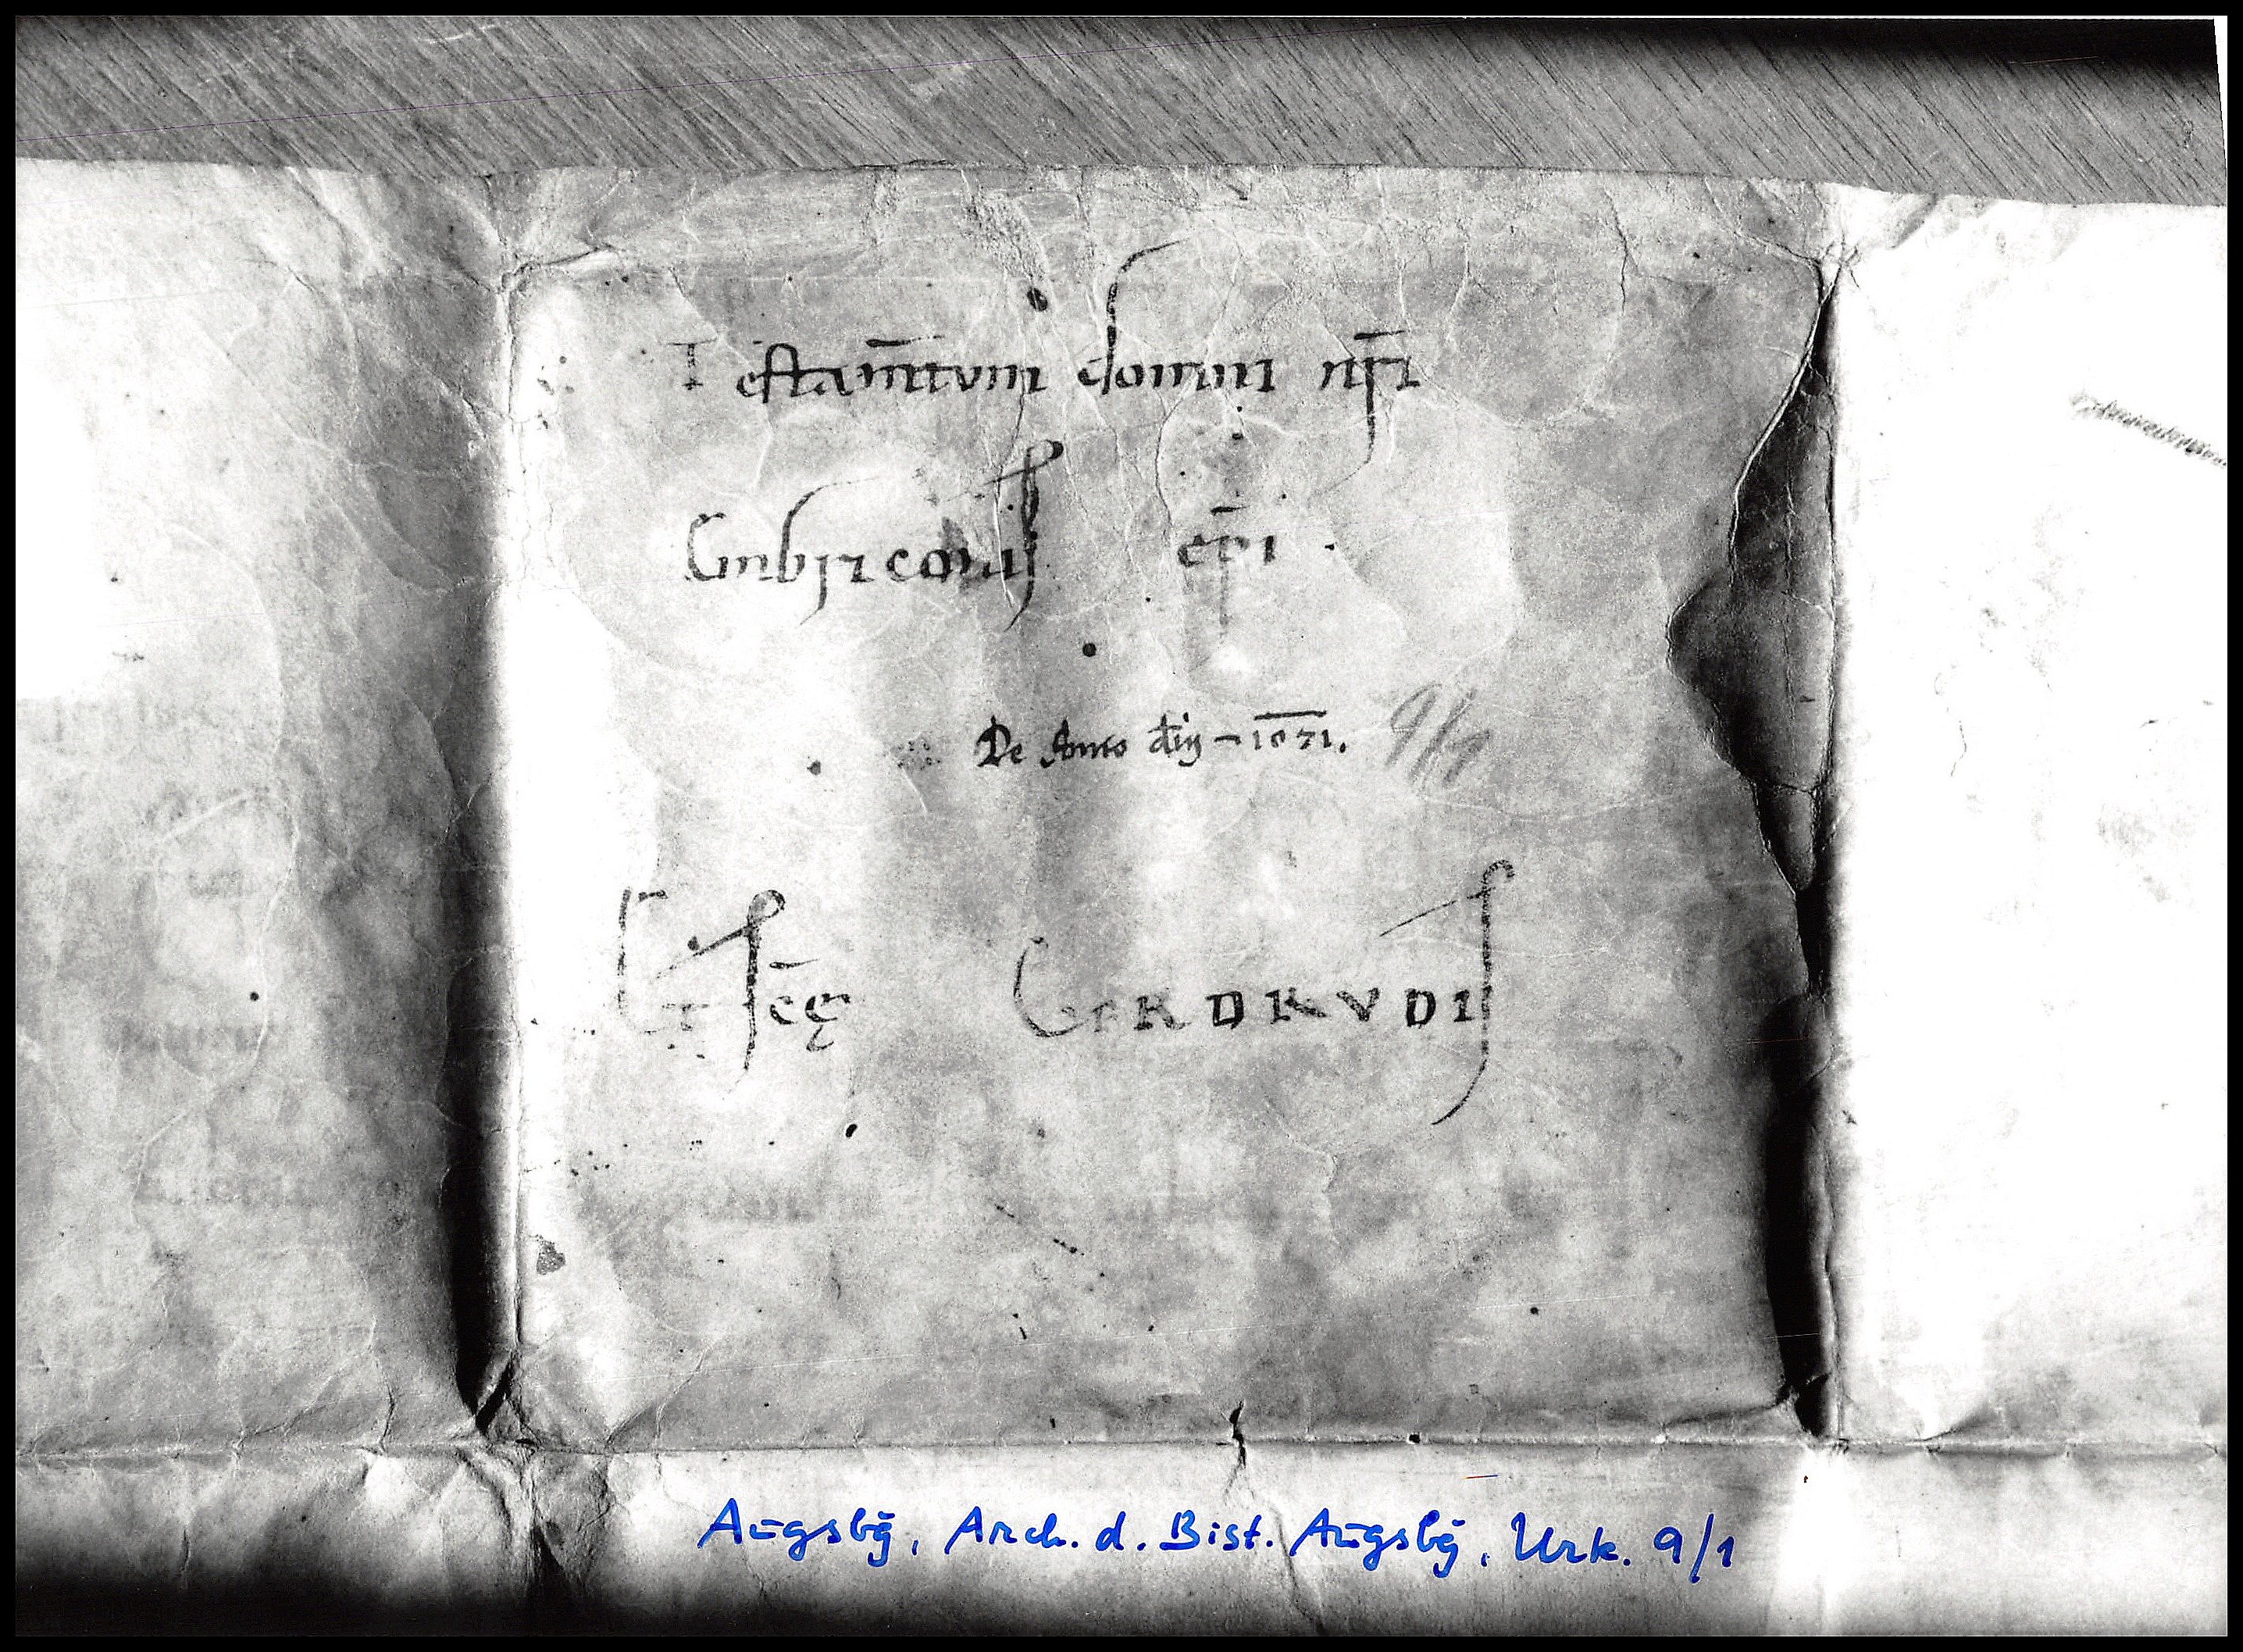 Testam̄tvm domini nr̄i
Embriconis ep̄i .
De Anno dn̄i – 1071. 9/1
Et sc̄ę GERDRVDIS
Aūgsbḡ, Arch. d. Bist. Aūgsbḡ, Urk. 9/1